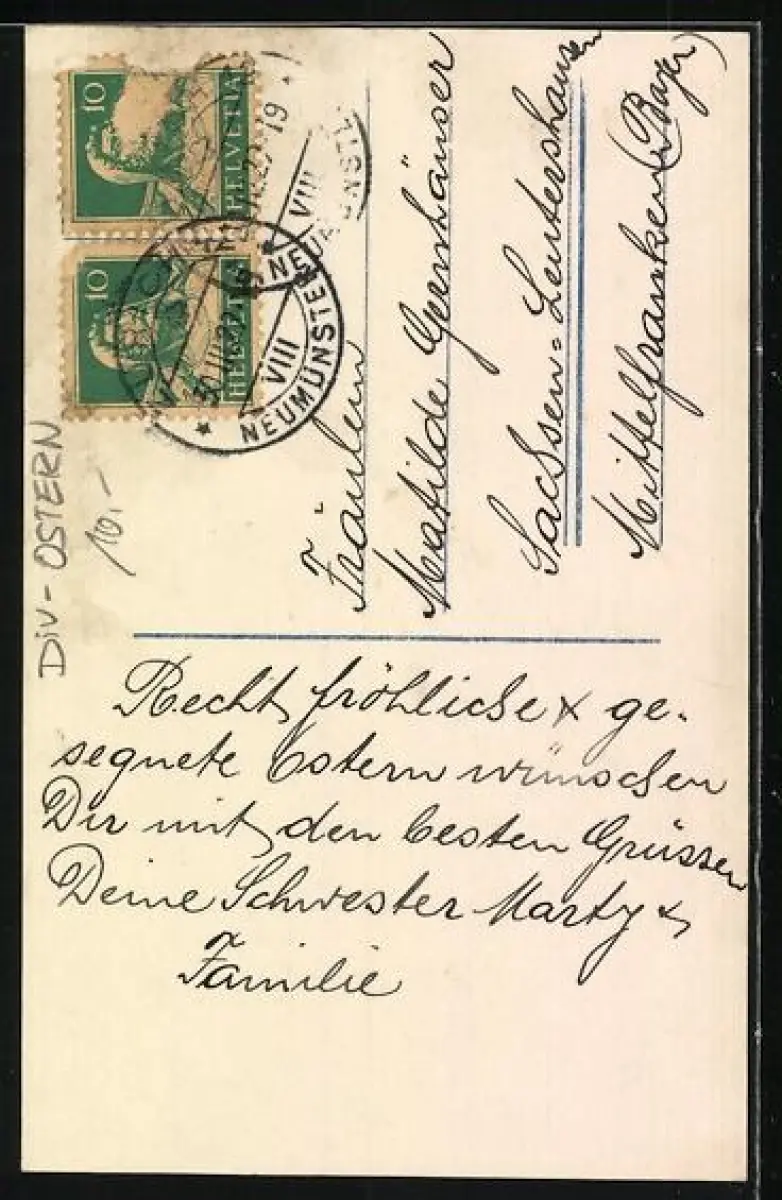 10
HELVETIA
10
HELVETIA
VIII
NEUMÜNSTER
VIII
DIV-OSTERN
10.-
Fräulein
Matilde Gernhäuser
Sachsen=Leutershausen
Mittelfranken (Bayer)
Recht fröhliche & ge-
segnete Ostern wünschen
Dir mit den besten Grüssen
Deine Schwester Marty &
Familie